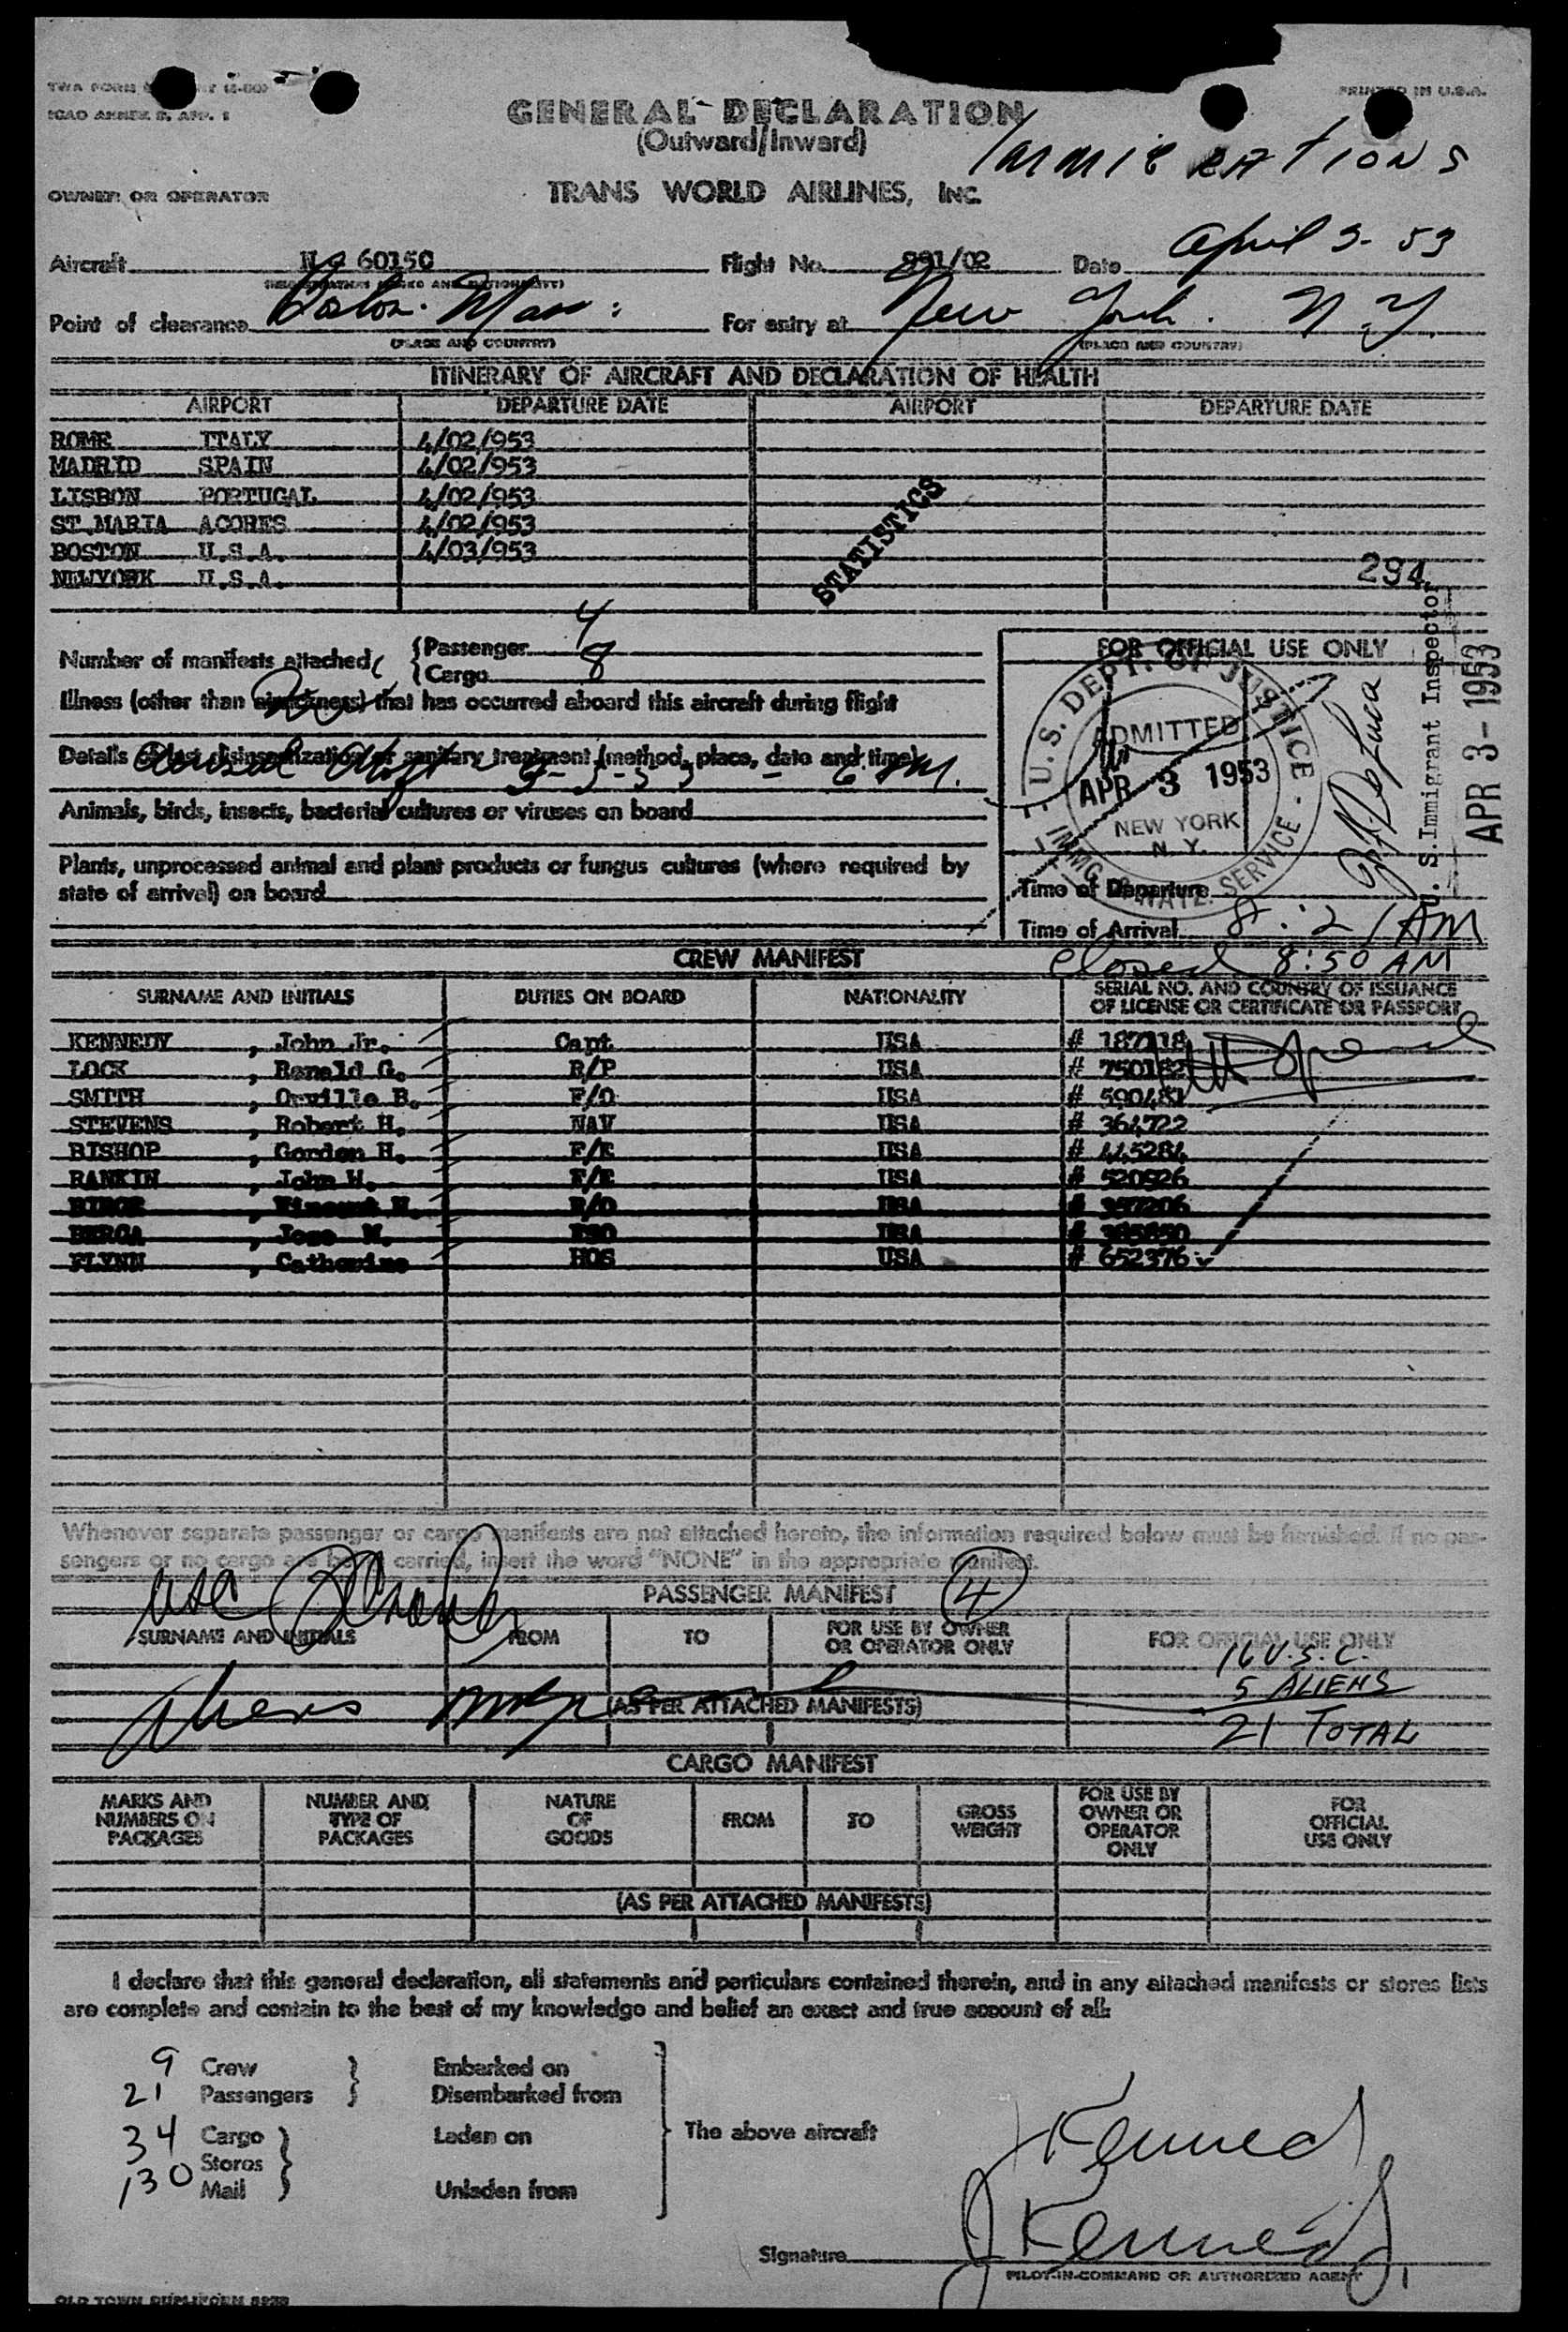 ICAO ANNEX 9, APP. 1
PRINTED IN U.S.A.
GENERAL DECLARATION
(Outward/Inward)
IMMIGRATIONS
OWNER OR OPERATOR
TRANS WORLD AIRLINES, INC.
Aircraft N 60150 Flight No. 891/02 Date April 3-53
Point of clearance Boston. Mass: For entry at New York. N.Y.
(PLACE AND COUNTRY) (PLACE AND COUNTRY)
ITINERARY OF AIRCRAFT AND DECLARATION OF HEALTH
AIRPORT DEPARTURE DATE AIRPORT DEPARTURE DATE
ROME ITALY 4/02/953
MADRID SPAIN 4/02/953
LISBON PORTUGAL 4/02/953
ST.MARIA ACORES 4/02/953
BOSTON U.S.A. 4/03/953
NEWYORK U.S.A.
STATISTICS
294
Number of manifests attached { Passenger 4
{ Cargo 8
Illness (other than airsickness) that has occurred aboard this aircraft during flight
Details of last disinsectization or sanitary treatment (method, place, date and time)
Animals, birds, insects, bacterial cultures or viruses on board
Plants, unprocessed animal and plant products or fungus cultures (where required by
state of arrival) on board
FOR OFFICIAL USE ONLY
U.S. DEPT. OF JUSTICE
ADMITTED
APR 3 1953
NEW YORK
N.Y.
IMMG. & NATZ. SERVICE
U. S. Immigrant Inspector
APR 3-1953
Time of Departure
Time of Arrival 8:21 AM
Closed 8:50 AM
CREW MANIFEST
SURNAME AND INITIALS DUTIES ON BOARD NATIONALITY SERIAL NO. AND COUNTRY OF ISSUANCE
OF LICENSE OR CERTIFICATE OR PASSPORT
KENNEDY , John Jr. Capt USA # 187118
LOCK , Ronald G. R/P USA # 750182
SMITH , Orville B. F/O USA # 590481
STEVENS , Robert H. NAV USA # 364722
BISHOP , Gordon H. F/E USA # 445284
RANKIN , John W. F/E USA # 520926
Vincent R/O USA # 397206
BERGA , Jose M. USA # 385850
FLYNN , Catherine HOS USA # 652376
Whenever separate passenger or cargo manifests are not attached hereto, the information required below must be furnished. If no pas-
sengers or no cargo are being carried, insert the word "NONE" in the appropriate manifest.
PASSENGER MANIFEST 4
SURNAME AND INITIALS FROM TO FOR USE BY OWNER
OR OPERATOR ONLY FOR OFFICIAL USE ONLY
16 U.S.C.
5 ALIENS
Aliens (AS PER ATTACHED MANIFESTS)
21 TOTAL
CARGO MANIFEST
MARKS AND
NUMBERS ON
PACKAGES NUMBER AND
TYPE OF
PACKAGES NATURE
OF
GOODS FROM TO GROSS
WEIGHT FOR USE BY
OWNER OR
OPERATOR
ONLY FOR
OFFICIAL
USE ONLY
(AS PER ATTACHED MANIFESTS)
I declare that this general declaration, all statements and particulars contained therein, and in any attached manifests or stores lists
are complete and contain to the best of my knowledge and belief an exact and true account of all:
9 Crew } Embarked on
21 Passengers } Disembarked from
34 Cargo } Laden on The above aircraft
Stores
130 Mail } Unladen from
J Kennedy
Signature J Kennedy
PILOT-IN-COMMAND OR AUTHORIZED AGENT